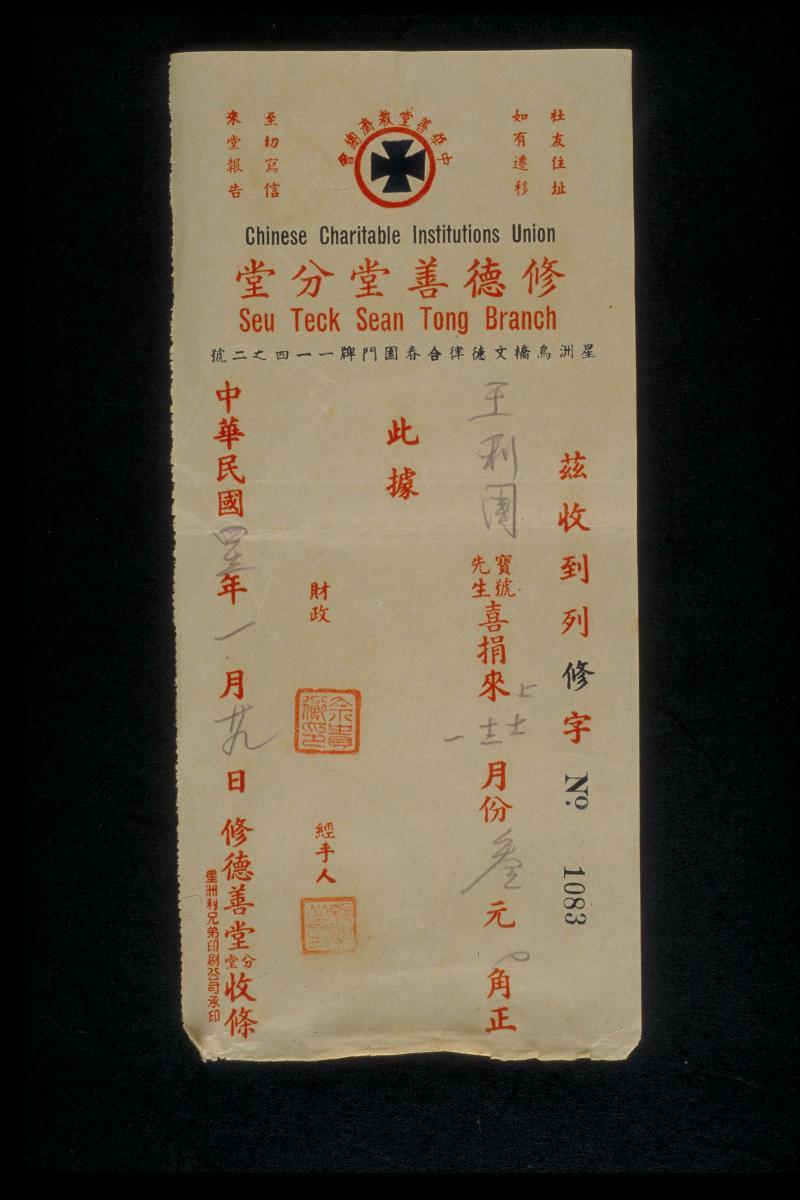 社友住址
如有遷移
至切寫信
來堂報告
中華善堂救濟總會
Chinese Charitable Institutions Union
修德善堂分堂
Seu Teck Sean Tong Branch
星洲烏橋文德律合春園門牌一一四之二號
茲收到列修字 No. 1083
王利
寶號
先生
喜捐來
十一
十二
一
月份叁元
角正
此據
財政
經手人
中華民國
年一月廿九日
修德善堂分堂收條
星洲利兄弟印刷公司承印